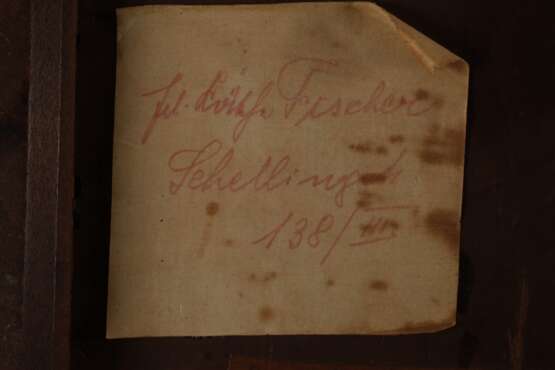 frl. Käthe Fischer
Schellingst
138/III